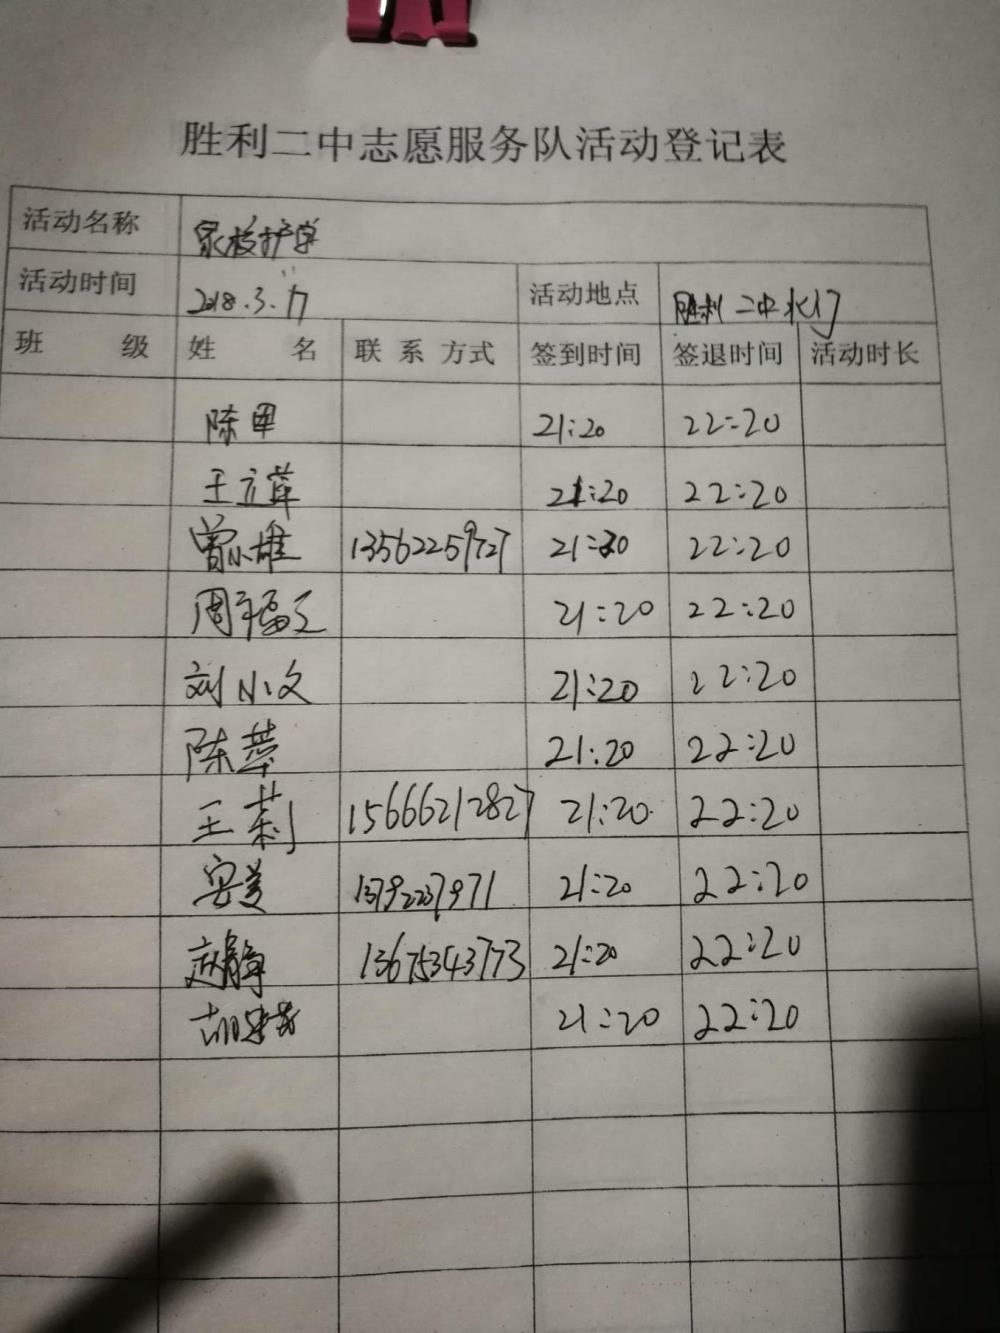 胜利二中志愿服务队活动登记表
活动名称 家校护学
活动时间 2018.3.17 活动地点 胜利二中北门
班 级 姓 名 联系方式 签到时间 签退时间 活动时长
陈甲 21:20 22:20
王立萍 21:20 22:20
曾小雄 13562259727 21:20 22:20
周 21:20 22:20
刘小文 21:20 22:20
陈苹 21:20 22:20
王莉 15666212827 21:20 22:20
安美 13792237971 21:20 22:20
赵静 13675343773 21:20 22:20
胡 21:20 22:20